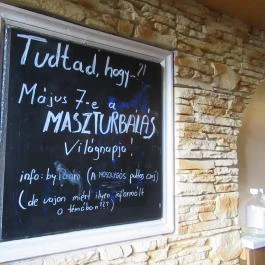 Tudtad, hogy...?!
Május 7-e a
MASZTURBÁLÁS
Világnapja!
info: by (A MOSOLYGÓS pultos csaj)
(de vajon miért ilyen informált
a témában??)